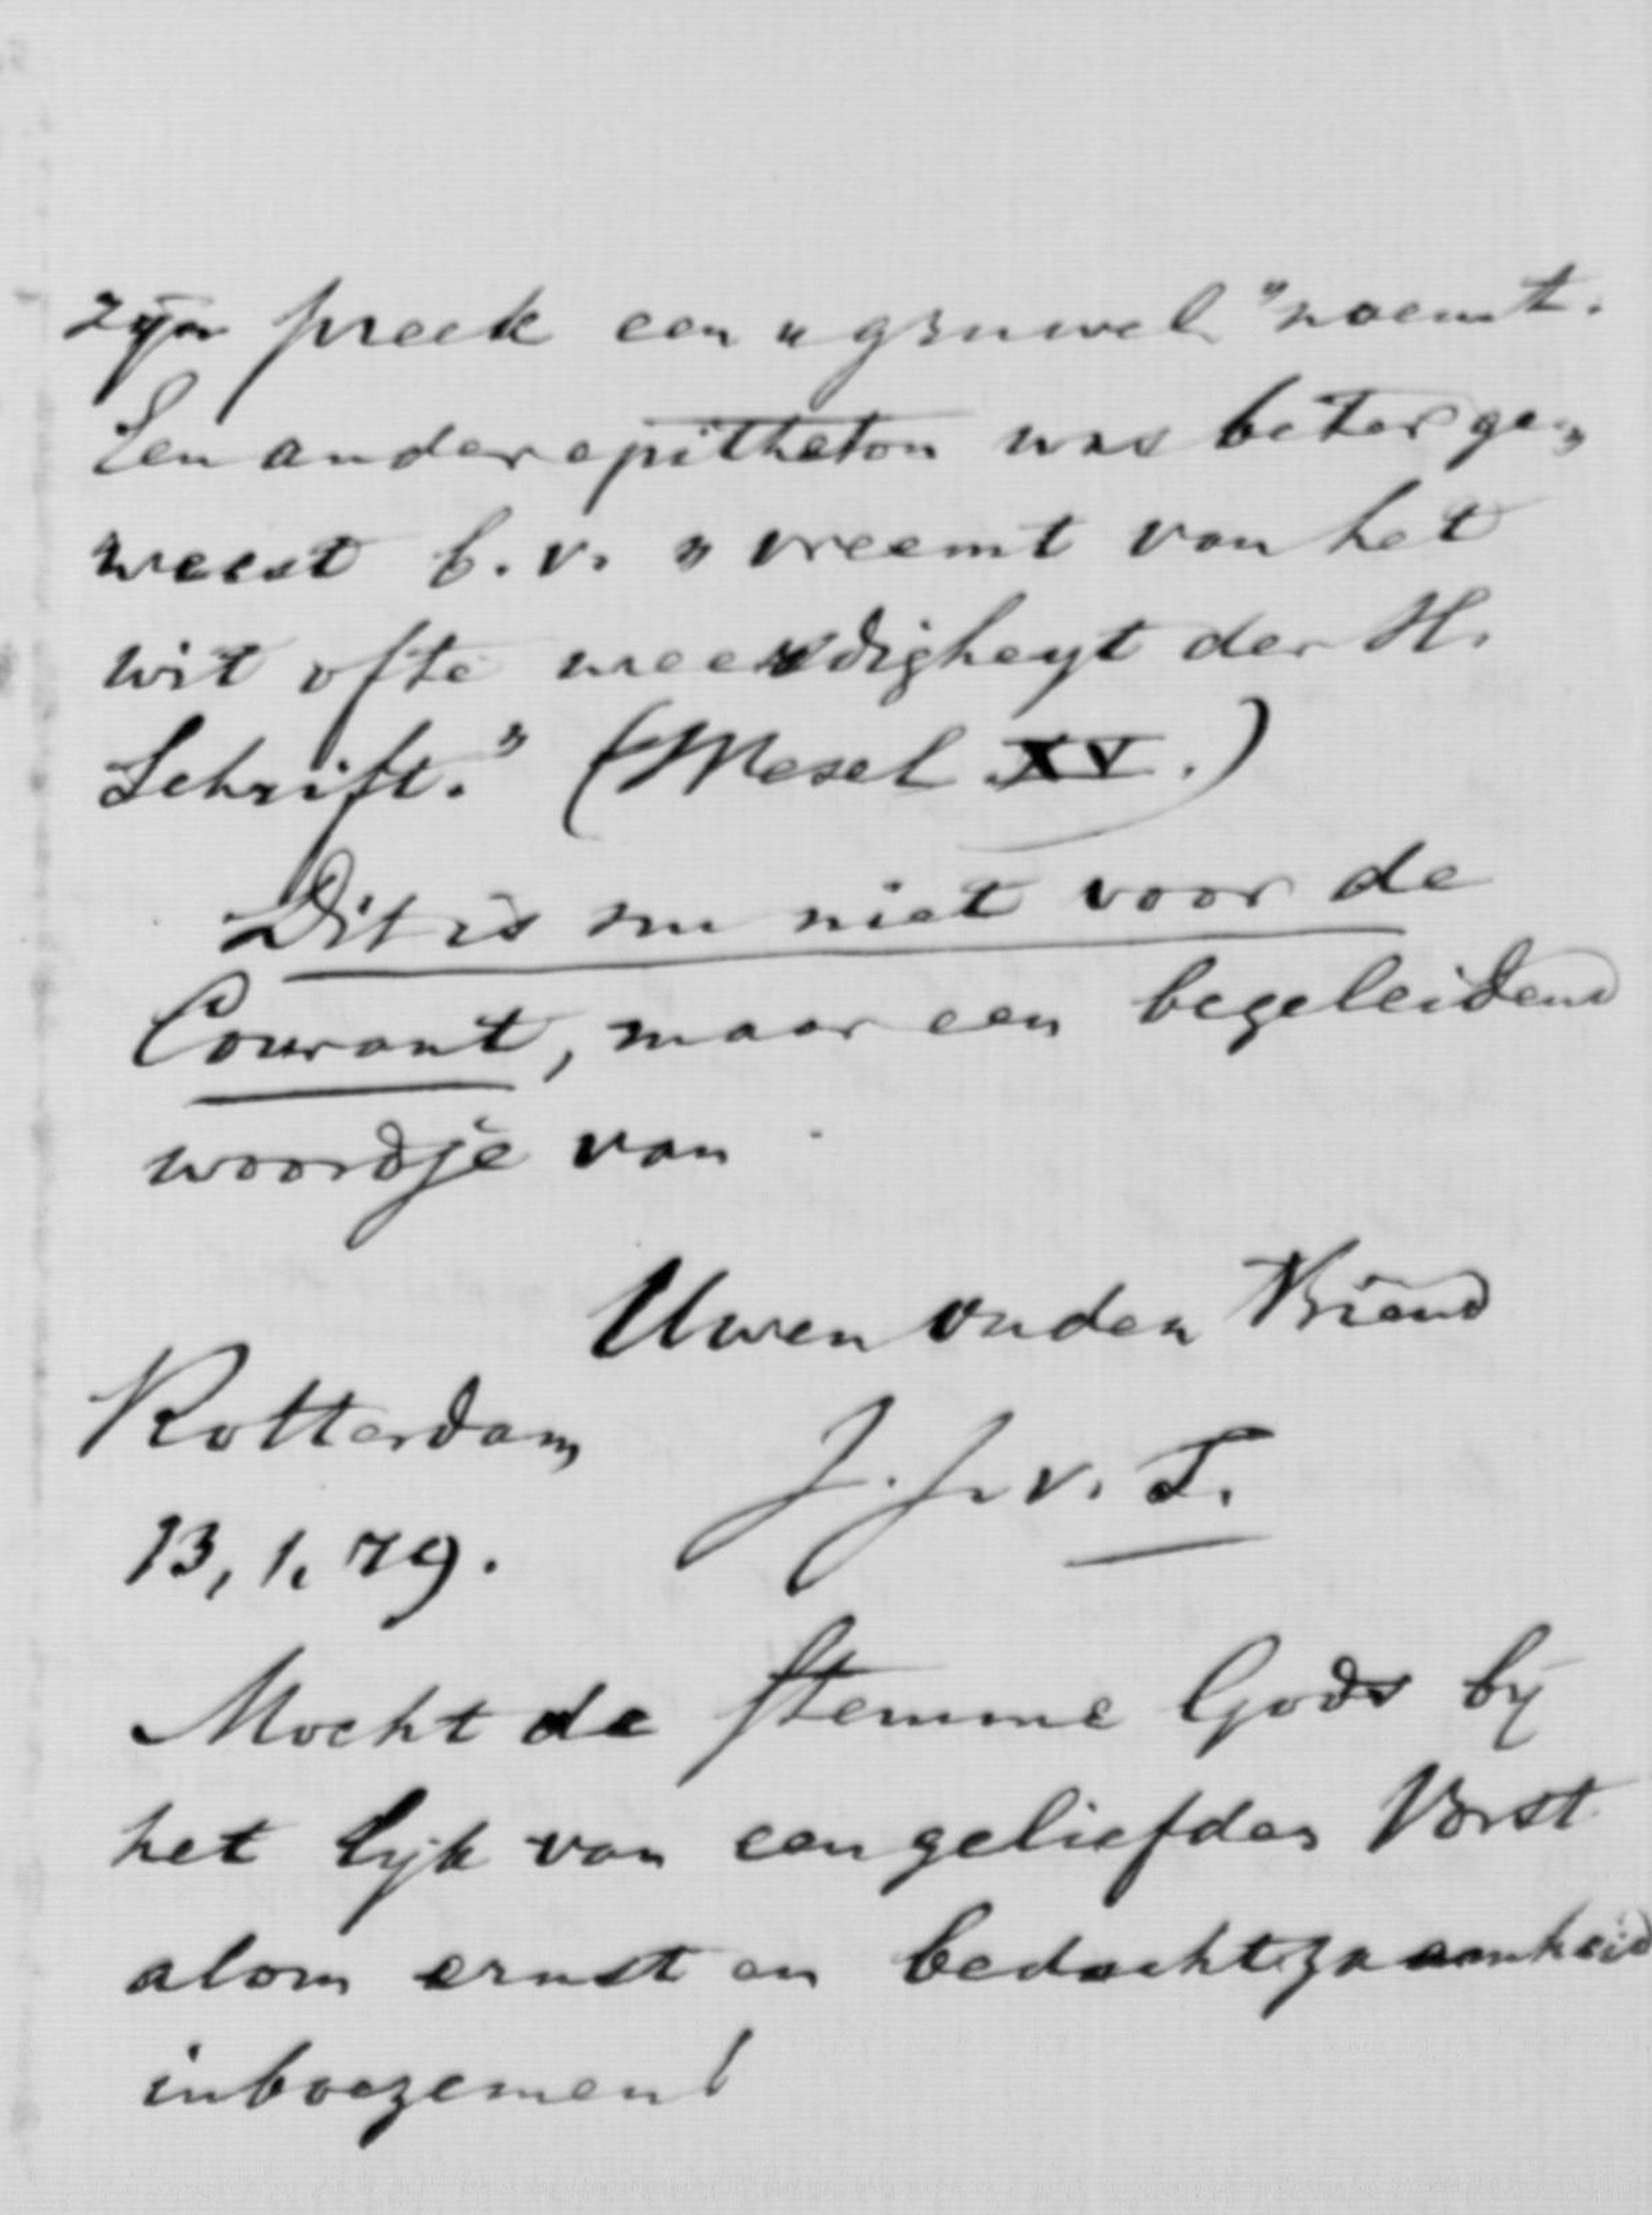 zijn preek een „gruwel" noemt.
Een ander epitheton was beter ge„
weest b.v. „vreemt van het
wit ofte weerdigheyt der H.
Schrift." (Wesel XV.)
Dit is nu niet voor de
Courant, maar een begeleidend
woordje van
Uwen ouden Vriend
Rotterdam J. J. v. T.
13, 1. 79.
Mocht de stemme Gods bij
het lijk van een geliefden Vorst
alom ernst en bedachtzaamheid
inboezemen!